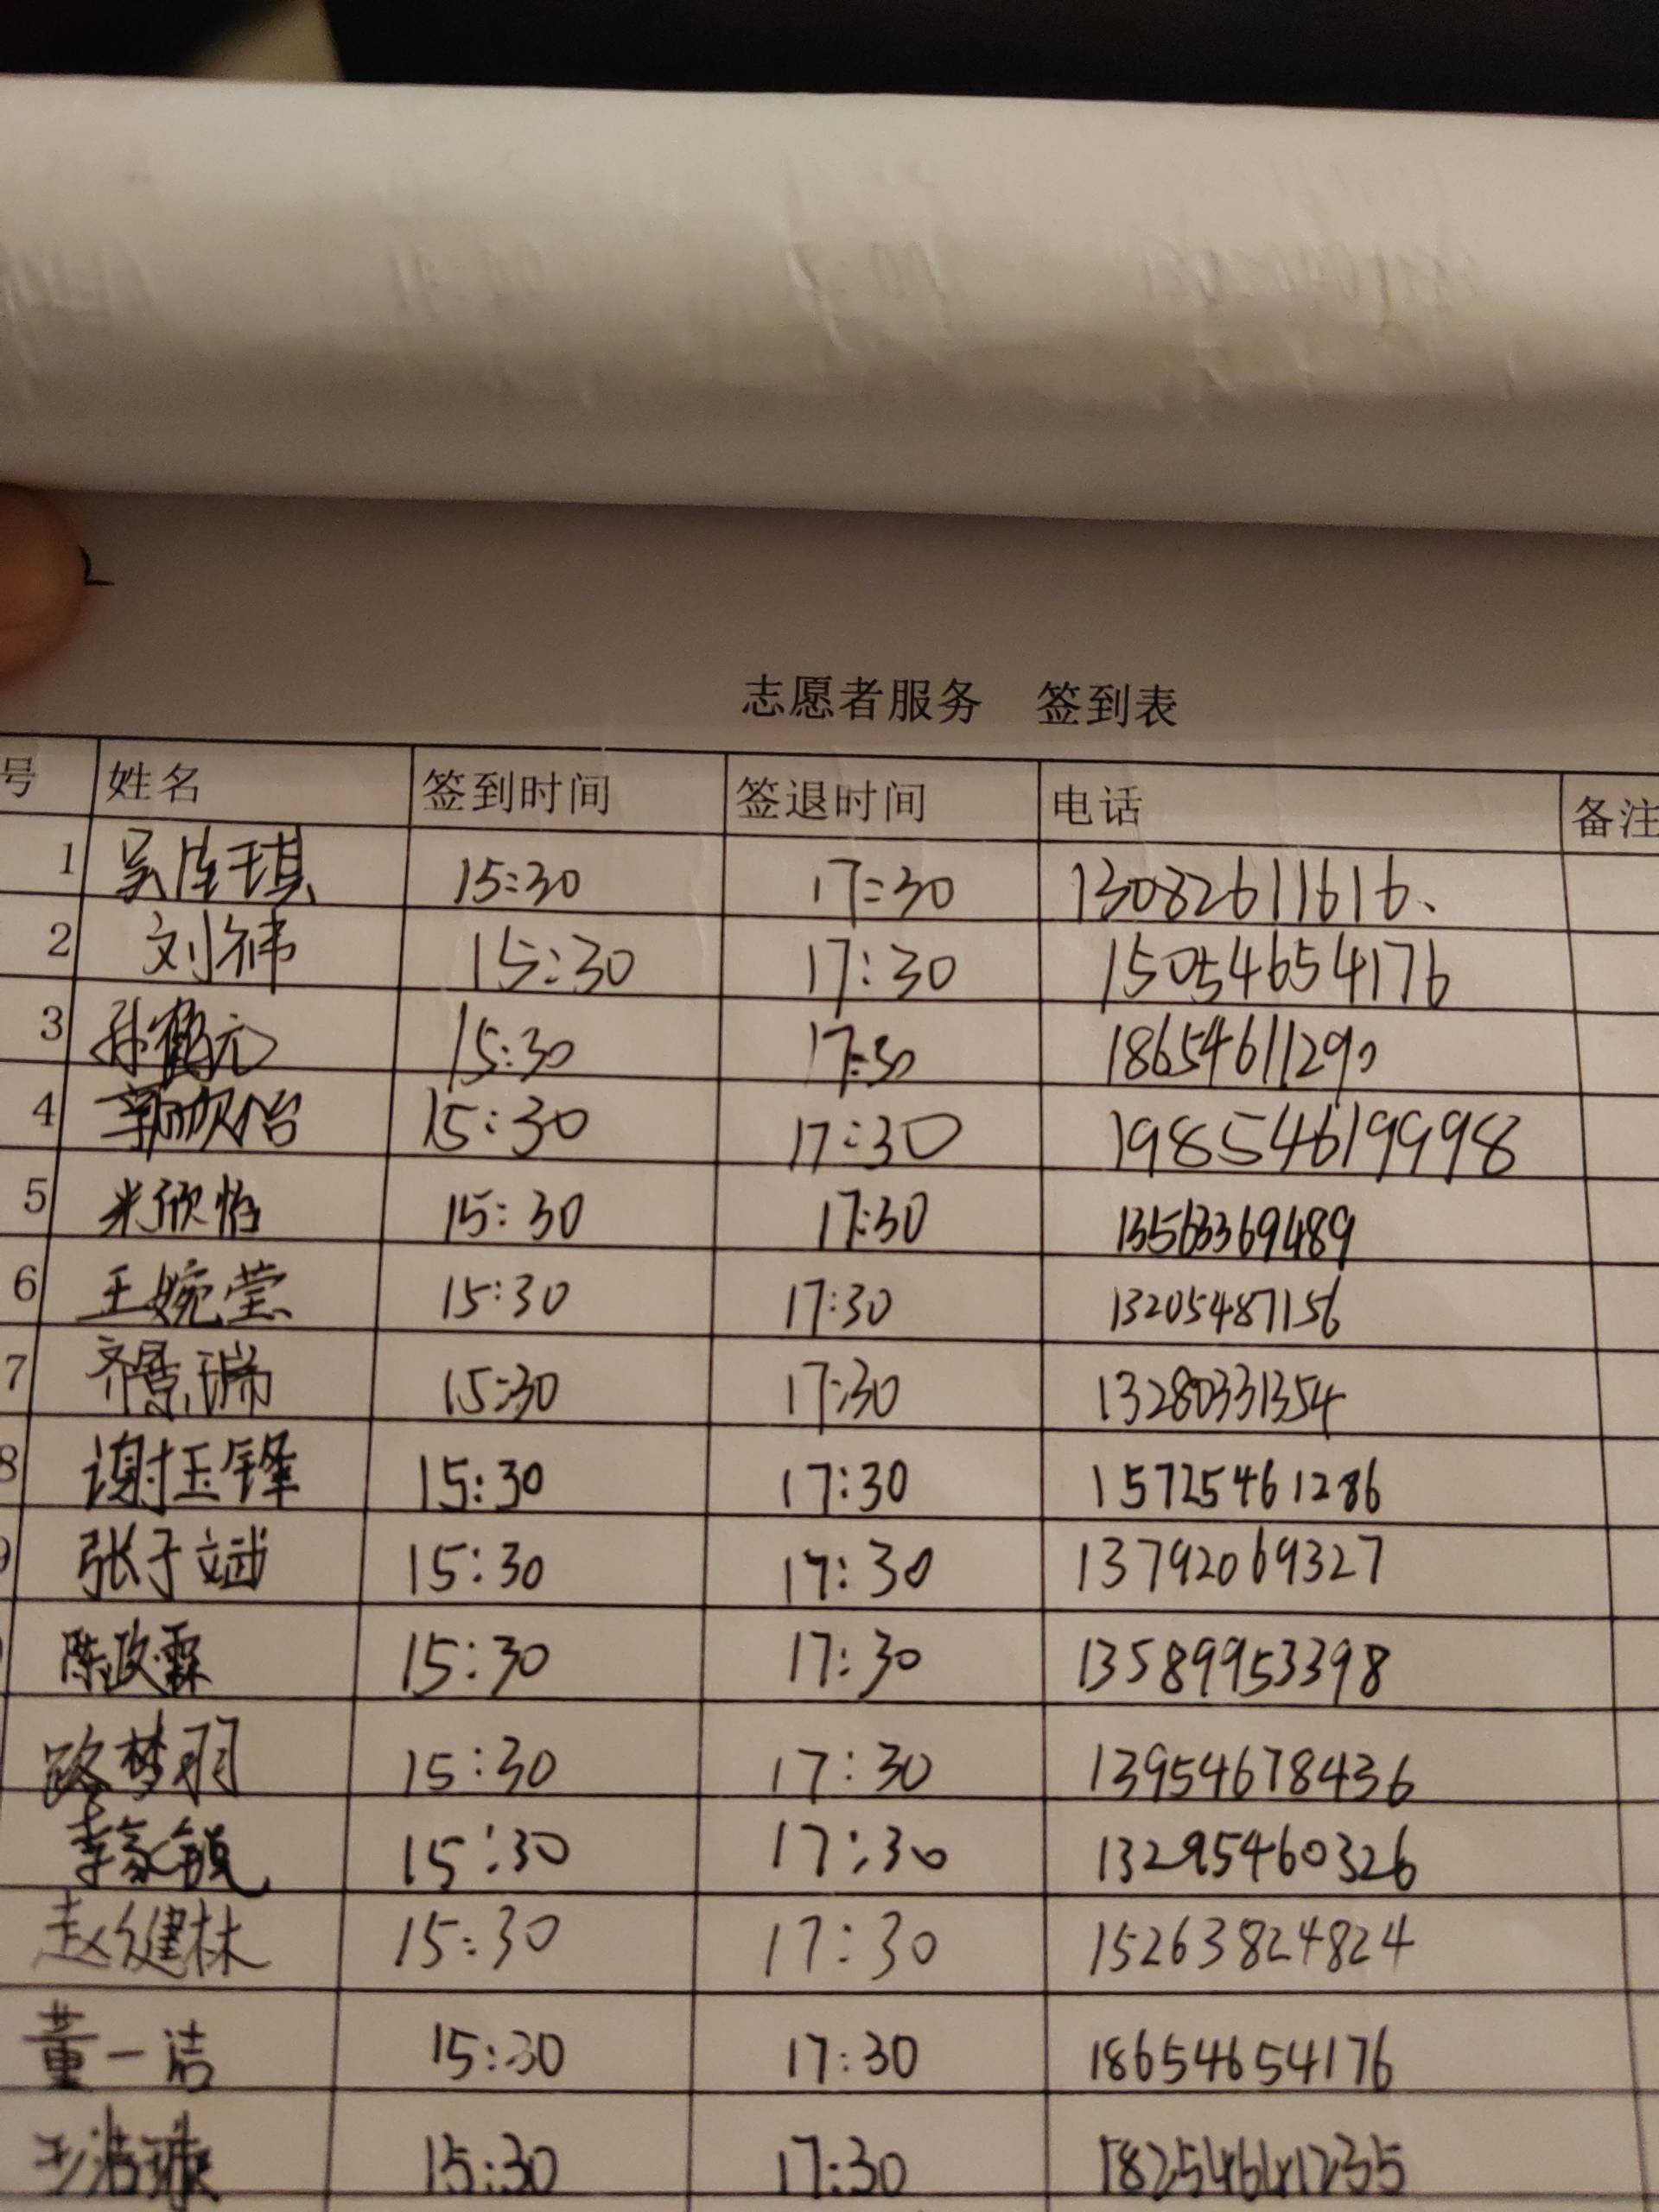 志愿者服务 签到表
号 姓名 签到时间 签退时间 电话 备注
1 吴佳琪 15:30 17:30 13082611616、
2 刘祎 15:30 17:30 15054654176
3 孙鹤元 15:30 17:30 18654611290
4 15:30 17:30 198546199998
5 米欣怡 15:30 17:30 13563369489
6 王婉莹 15:30 17:30 13205487156
7 齐景瑞 15:30 17:30 13280331354
8 谢玉锋 15:30 17:30 15725461286
张于斌 15:30 17:30 13792069327
陈政霖 15:30 17:30 13589953398
路梦羽 15:30 17:30 13954678436
李家锐 15:30 17:30 13295460326
赵健林 15:30 17:30 15263824824
董一洁 15:30 17:30 18654654176
15:30 17:30